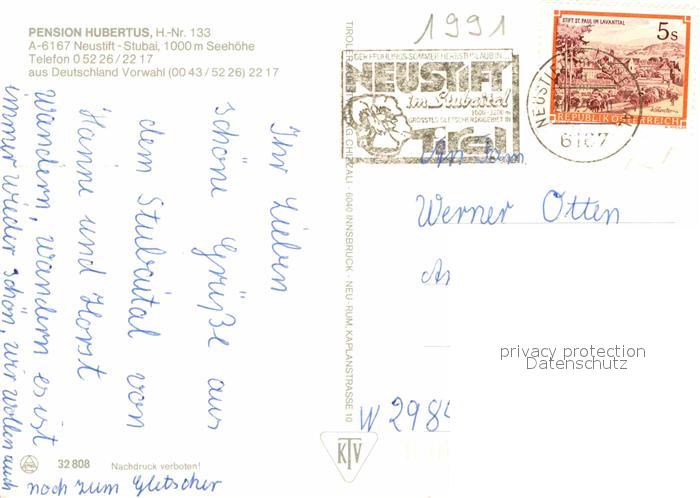 PENSION HUBERTUS, H.-Nr. 133
A-6167 Neustift - Stubai, 1000 m Seehöhe
Telefon 0 52 26 / 22 17
aus Deutschland Vorwahl (00 43 / 52 26) 22 17
Ihr Lieben
schöne Grüße aus
dem Stubaital von
Hanne und Horst
wandern, wandern es ist
immer wieder schön, wir wollen auch
noch zum Gletscher
32 808
Nachdruck verboten!
KTV
6040 INNSBRUCK · NEU-RUM, KAPLANSTRASSE 10
1991
NEUSTIFT
im Stubaital
Tirol
STIFT ST. PAUL IM LAVANTTAL
5s
REPUBLIK ÖSTERREICH
6167
Werner Otten
W 2984
privacy protection
Datenschutz